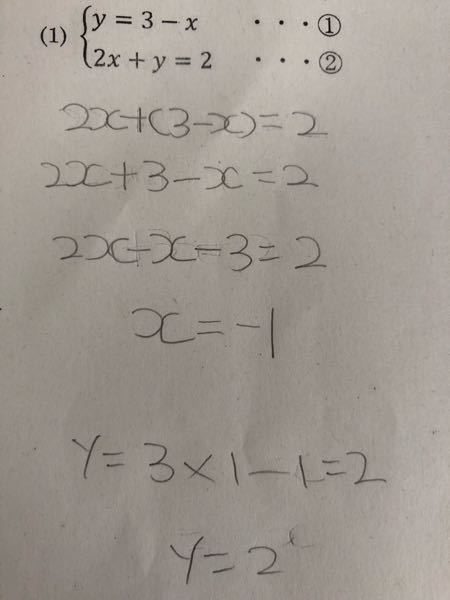 (1) {y = 3 − x ・・・①
2x + y = 2 ・・・②
2x+(3-x)=2
2x+3-x=2
2x-x-3=2
x=-1
y=3×1-1=2
y=2